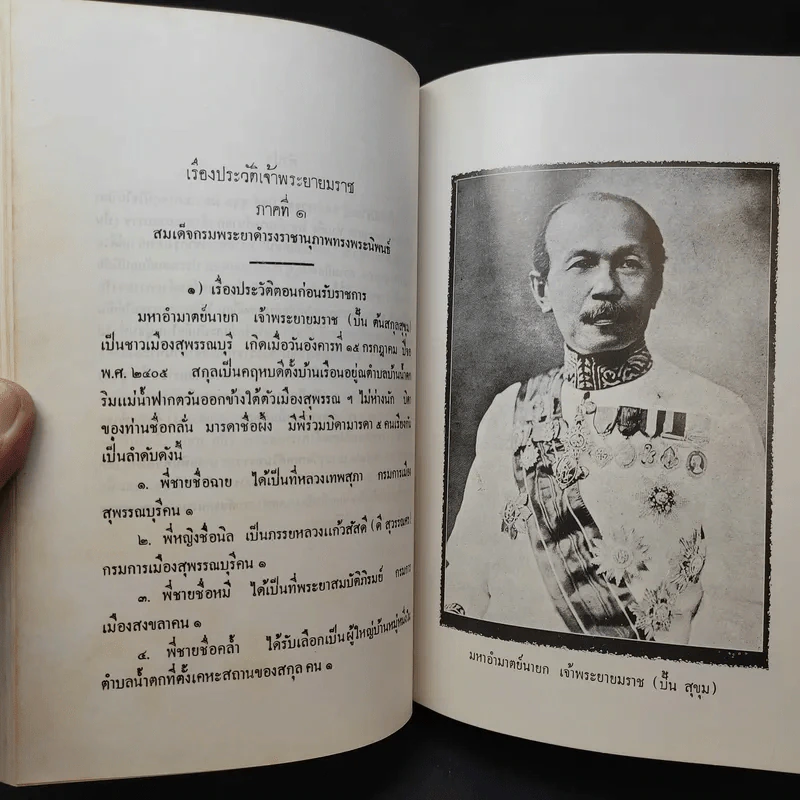 เรื่องประวัติเจ้าพระยายมราช
ภาคที่ ๑
สมเด็จกรมพระยาดำรงราชานุภาพทรงพระนิพนธ์
๑) เรื่องประวัติตอนก่อนรับราชการ
มหาอำมาตย์นายก เจ้าพระยายมราช (ปั้น ต้นสกุลสุขุม)
เป็นชาวเมืองสุพรรณบุรี เกิดเมื่อวันอังคารที่ ๑๕ กรกฎาคม
พ.ศ. ๒๔๐๕ สกุลเป็นคฤหบดีตั้งบ้านเรือนอยู่ณตำบลบ้านน้ำตก
ริมแม่น้ำฟากตวันออกข้างใต้ตัวเมืองสุพรรณ ฯ ไม่ห่างนัก
ของท่านชื่อกลั่น มารดาชื่อผึ้ง มีพี่ร่วมบิดามารดา ๕ คนเรียงกัน
เป็นลำดับดังนี้
๑. พี่ชายชื่อฉาย ได้เป็นที่หลวงเทพสุภา กรมการเมือง
สุพรรณบุรีคน ๑
๒. พี่หญิงชื่อนิล เป็นภรรยหลวงแก้วสัสดี (ดี
กรมการเมืองสุพรรณบุรีคน ๑
๓. พี่ชายชื่อหมี ได้เป็นที่พระยาสมบัติภิรมย์ กรมการ
เมืองสงขลาคน ๑
๔. พี่ชายชื่อคล้ำ ได้รับเลือกเป็นผู้ใหญ่บ้านหมู่หนึ่งใน
ตำบลน้ำตกที่ตั้งเคหะสถานของสกุล คน ๑
มหาอำมาตย์นายก เจ้าพระยายมราช (ปั้น สุขุม)